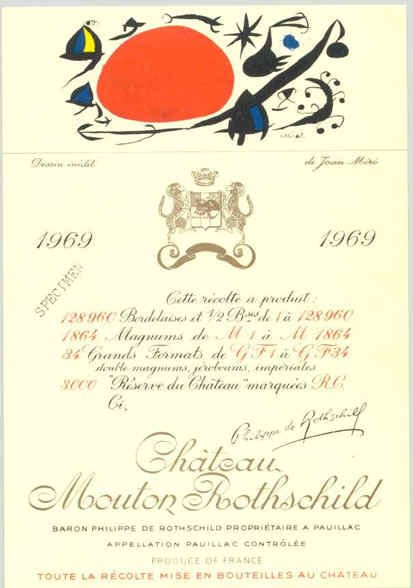 Miró
Dessin inédit
de Joan Miró
1969
1969
SPECIMEN
Cette récolte a produit :
128960 Bordelaises et 1/2 Bses de 1 à 128960
1864 Magnums de M 1 à M 1864
34 Grands Formats de G F 1 à G F 34
double magnums, jéroboams, impériales
3000 "Réserve du Château" marquées R.C.
Ci,
Philippe de Rothschild
Château
Mouton Rothschild
BARON PHILIPPE DE ROTHSCHILD PROPRIÉTAIRE A PAUILLAC
APPELLATION PAUILLAC CONTRÔLÉE
PRODUCE OF FRANCE
TOUTE LA RÉCOLTE MISE EN BOUTEILLES AU CHÂTEAU